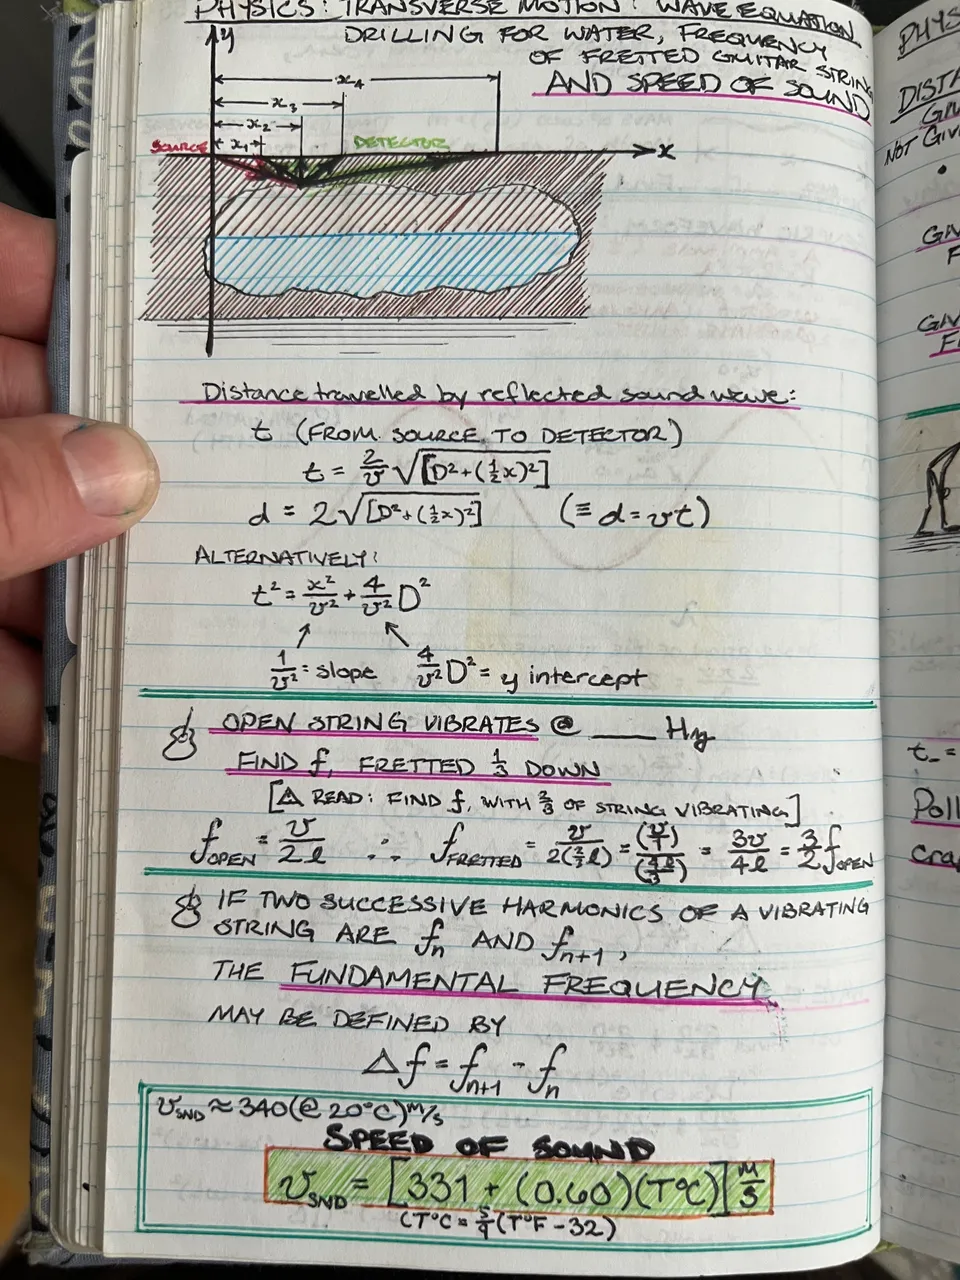 PHYSICS: TRANSVERSE MOTION: WAVE EQUATION
DRILLING FOR WATER, FREQUENCY
OF FRETTED GUITAR STRING
AND SPEED OF SOUND
y
x₄
x₃
x₂
SOURCE x₁ DETECTOR
x
Distance travelled by reflected sound wave:
t (FROM SOURCE TO DETECTOR)
t = 2/v √[D²+(½x)²]
d = 2√[D²+(½x)²] (≡ d=vt)
ALTERNATIVELY:
t² = x²/v² + 4/v² D²
1/v² = slope 4/v² D² = y intercept
OPEN STRING VIBRATES @ ____ Hz
FIND f, FRETTED ⅓ DOWN
[⚠ READ: FIND f, WITH ⅔ OF STRING VIBRATING]
f OPEN = v/2l ∴ f FRETTED = v/2(⅔l) = (v/1)/(4l/3) = 3v/4l = 3/2 f OPEN
IF TWO SUCCESSIVE HARMONICS OF A VIBRATING
STRING ARE fn AND fn+1,
THE FUNDAMENTAL FREQUENCY
MAY BE DEFINED BY
Δf = fn+1 - fn
vSND ≈ 340 (@ 20°C) m/s
SPEED OF SOUND
vSND = [331 + (0.60)(T°C)] m/s
(T°C = 5/9 (T°F - 32)
PHYS
DISTA
GIV
NOT GIV
GIV
F
GIV
F
t_ =
Poll
cra